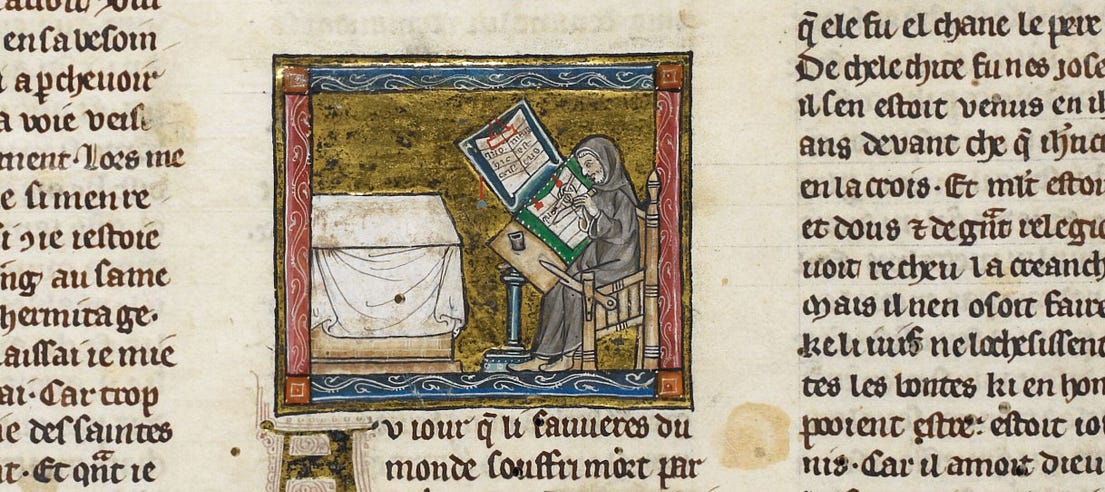 en sa besoin
a ꝑcheuoir
a voie vers
ment · Lors me
e si menre
si ꝯie iestoie
ing au same
hermitage ·
laissai ie mie
ai · Car trop
ie des saintes
t · Et qñt ie
v iour q̄ li sauueres du
monde souffri mort par
q̄ ele fu el chane le pere
De chele chite fu nes iose
il sen estoit venus en ih
ans devant che q̄ ih̄uc
en la crois · Et ml̅t estoi
et dous ⁊ de gñt religio
uoit recheu la creanch
Mais il nen osoit faire
ke li iuif ne lochesissent
tes les bontes ki en hom
pooient estre : estoit io
nis · Car il amoit dieu